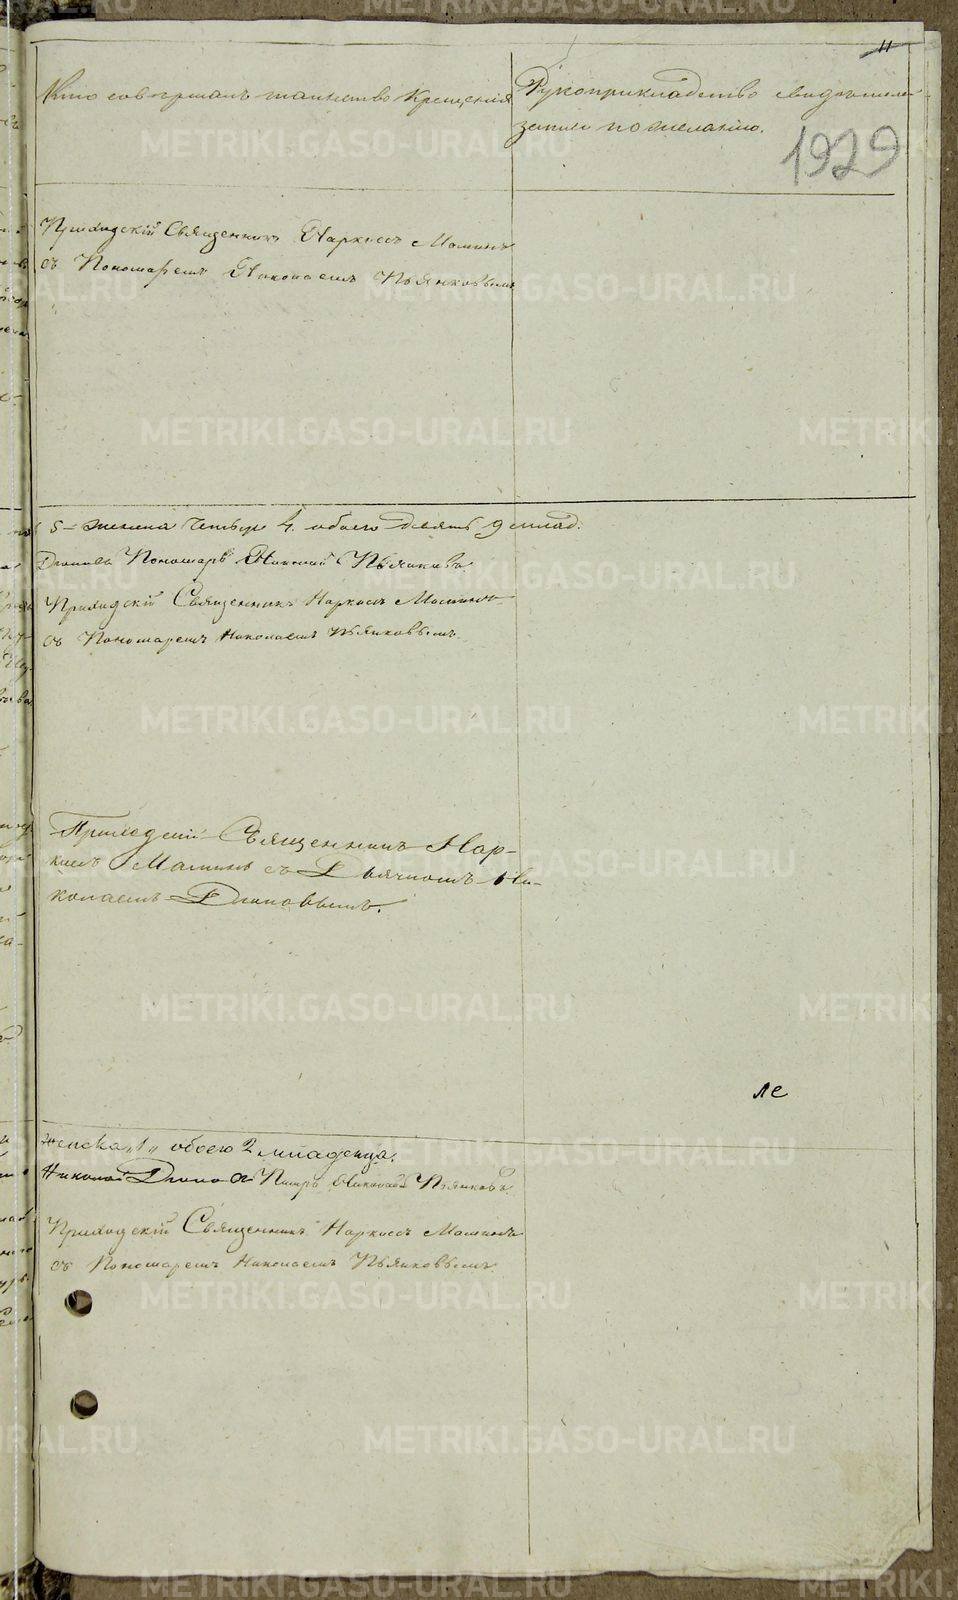 11
Кто совершалъ таинство Крещенія
Рукоприкладство свидѣтелей
записи по желанію.
1929
Приходскій Священникъ Наркисъ Маминъ
съ Пономаремъ Николаемъ Пьянковымъ
5 = женска четыре 4. обоего девять 9 млад.
Пономарь Николай Пьянковъ
Приходскій Священникъ Наркисъ Маминъ
съ Пономаремъ Николаемъ Пьянковымъ
Приходскій Священникъ Нар-
кисъ Маминъ съ Дьячкомъ Ни-
колаемъ
ле
женска „1„ обоего 2 младенца.
Николай Пономарь Николай Пьянковъ
Приходскій Священникъ Наркисъ Маминъ
съ Пономаремъ Николаемъ Пьянковымъ
METRIKI.GASO-URAL.RU